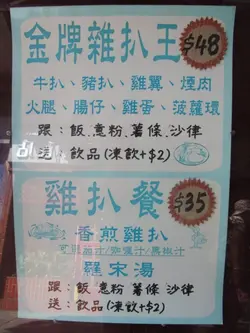 金牌雜扒王 $48
牛扒、豬扒、雞翼、煙肉
火腿、腸仔、雞蛋、菠蘿環
跟：飯.意粉.薯條.沙律
送：飲品(凍飲+$2)
雞扒餐 $35
香煎雞扒
羅宋湯
跟：飯 意粉 薯條 沙律
送：飲品(凍飲+$2)